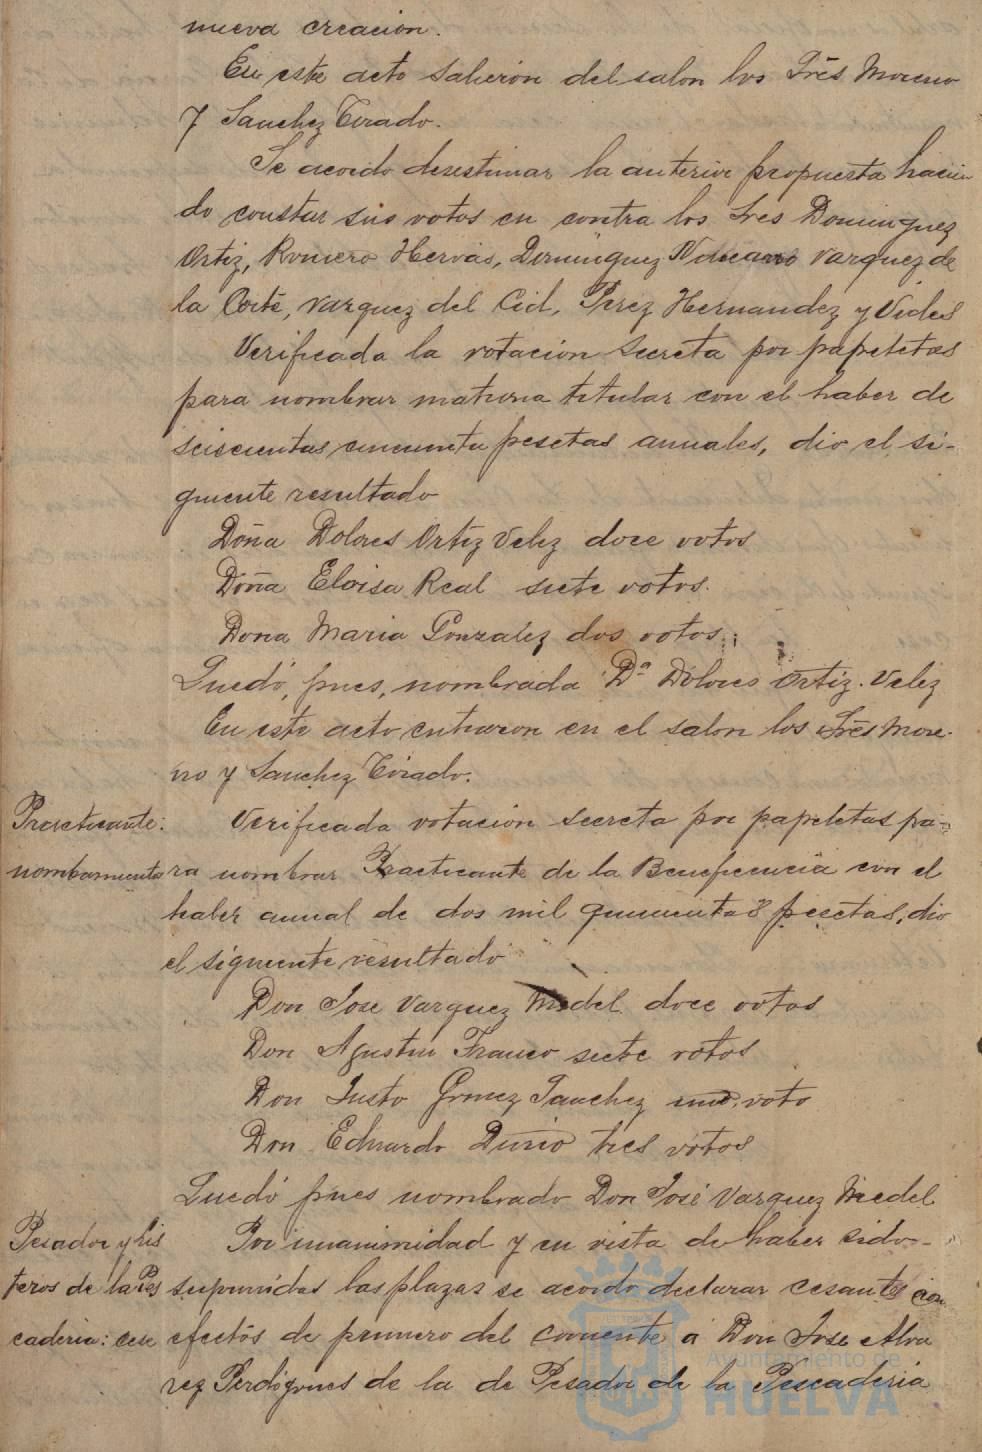 nueva creación.
En este acto salieron del salon los Srēs Moreno
y Sanchez Tirado.
Se acordo desestimar la anterior propuesta hacien
do constar sus votos en contra los Sres Dominguez
Ortiz, Romero Hervás, Dominguez Vazquez de
la Corte, Vazquez del Cid, Perez Hernandez y Vides
Verificada la votación secreta por papeletas
para nombrar matrona titular con el haber de
seiscientas cincuenta pesetas anuales, dio el si-
guiente resultado
Doña Dolores Ortiz Velez doce votos
Doña Eloisa Real siete votos.
Dona Maria Gonzalez dos votos
Quedó, pues, nombrada Dª Dolores Ortiz Velez
En este acto entraron en el salon los Srēs More-
no y Sanchez Tirado.
Practicante: Verificada votación secreta por papeletas pa-
nombramiento ra nombrar Practicante de la Beneficencia con el
haber anual de dos mil quinientas pesetas, dio
el siguiente resultado
Don Jose Vazquez Medel doce votos
Don Agustin Franco siete votos
Don Justo Gomez Sanchez un voto
Don Eduardo tres votos
Quedó pues nombrado Don José Vazquez Medel
Pesador y lis Por unanimidad y en vista de haber sido
teros de la Pes suprimidas las plazas se acordo declarar cesantes con
caderia: cese efectos de primero del corriente a Don Jose Alva
rez Perdigones de la de Pesador de la Pescaderia
Ayuntamiento de
HUELVA